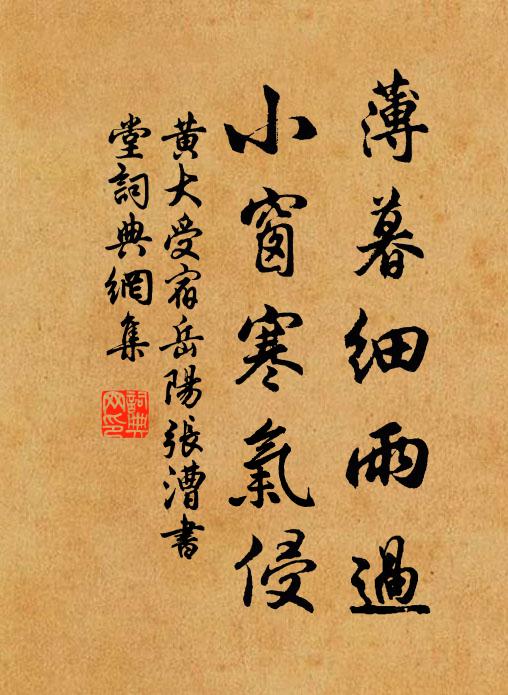 薄暮細雨過
小窗寒氣侵
黄大受宿岳陽張漕書
堂詞典網集
詞典
网印